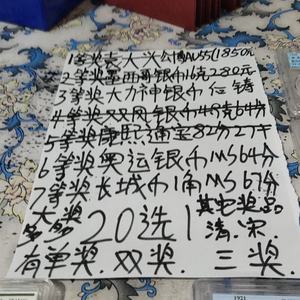 1等奖袁大头公博AU55(1850元
2等奖墨西哥银币16克280元
3等奖大力神银币 伍铸
4等奖双凤银币48克64分
5等奖康熙通宝82分27千
6等奖奥运银币MS64分
7等奖长城币1角MS67分
大奖 20选1 其它奖品
多多 清.宋.
有单奖.双奖.三奖.